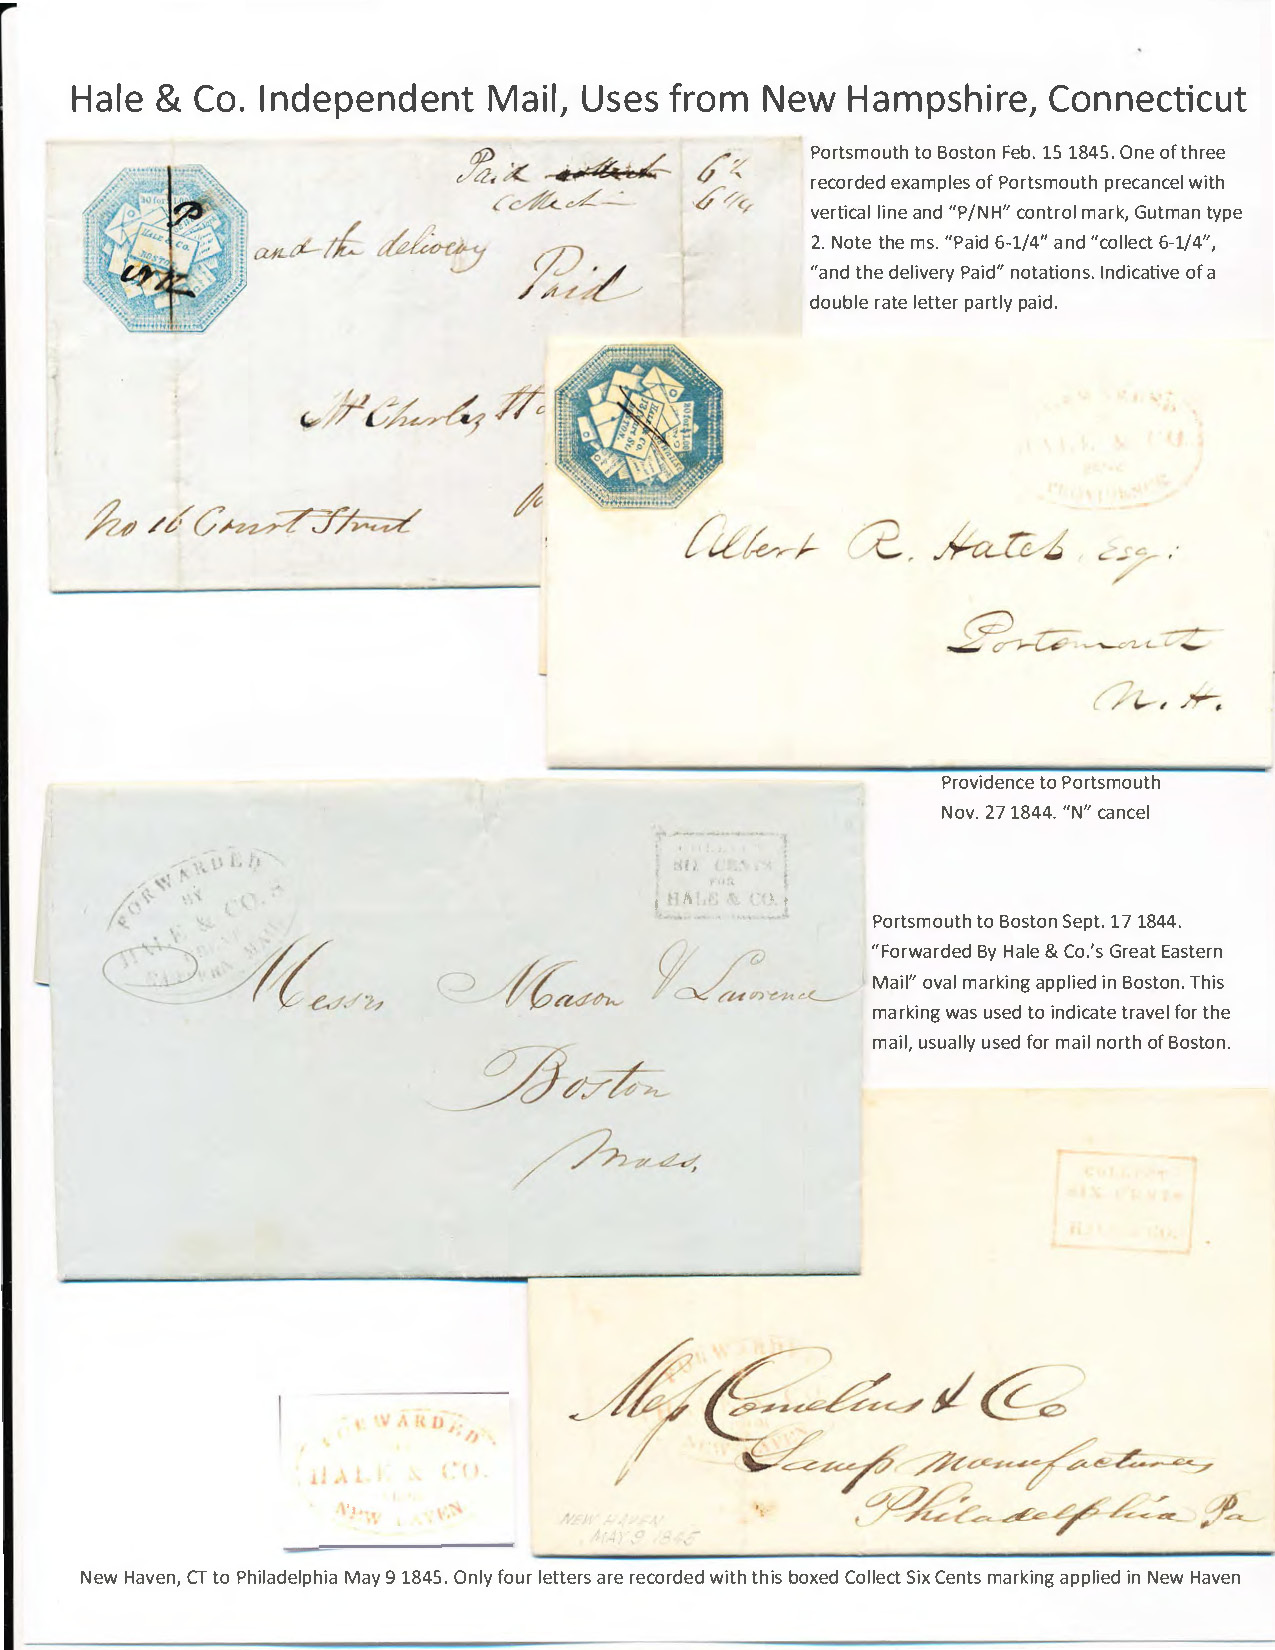 Hale & Co. Independent Mail, Uses from New Hampshire, Connecticut
Portsmouth to Boston Feb. 15 1845. One of three
recorded examples of Portsmouth precancel with
vertical line and "P/NH" control mark, Gutman type
2. Note the ms. "Paid 6-1/4" and "collect 6-1/4",
"and the delivery Paid" notations. Indicative of a
double rate letter partly paid.
Paid
collect 6 1/4
20 for 1.00
HALE & CO.
BOSTON
P
NH
and the delivery
Paid
Mr Charles
No 16 Court Street
20 for $1.00
HALE & CO.
BOSTON.
HALE & CO.
PROVIDENCE
Albert R. Hatch, Esq:
Portsmouth
N. H.
Providence to Portsmouth
Nov. 27 1844. "N" cancel
FORWARDED
BY
HALE & CO.'S
EASTERN MAIL
COLLECT
SIX CENTS
FOR
HALE & CO.
Messrs Mason & Lawrence
Boston
Mass.
Portsmouth to Boston Sept. 17 1844.
"Forwarded By Hale & Co.'s Great Eastern
Mail" oval marking applied in Boston. This
marking was used to indicate travel for the
mail, usually used for mail north of Boston.
COLLECT
SIX CENTS
HALE & CO.
FORWARDED
NEW HAVEN
Mess Cornelius & Co
Lamp Manufacturers
Philadelphia Pa
NEW HAVEN
MAY 9 1845
FORWARDED
HALE & CO.
NEW HAVEN
New Haven, CT to Philadelphia May 9 1845. Only four letters are recorded with this boxed Collect Six Cents marking applied in New Haven